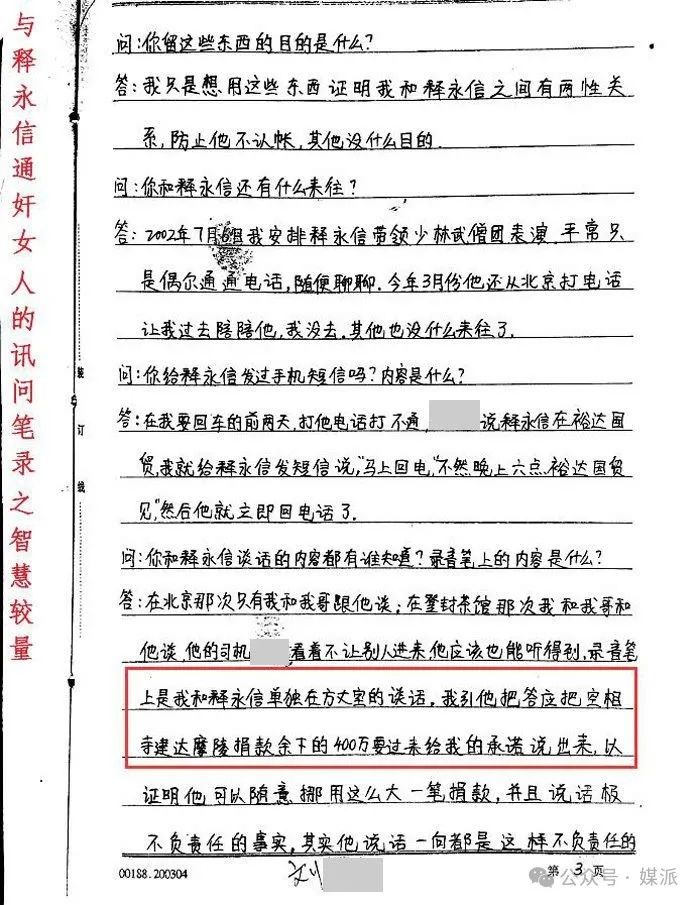 与释永信通奸女人的讯问笔录之智慧较量
问:你留这些东西的目的是什么?
答:我只是想用这些东西证明我和释永信之间有两性关
系,防止他不认帐,其他没什么目的.
问:你和释永信还有什么来往?
答:2002年7月 我安排释永信带领少林武僧团表演.平常只
是偶尔通通电话,随便聊聊.今年3月份他还从北京打电话
让我过去陪陪他,我没去.其他也没什么来往了.
问:你给释永信发过手机短信吗?内容是什么?
答:在我要回车的前两天,打他电话打不通, 说释永信在裕达国
贸,我就给释永信发短信说,"马上回电,"不然晚上六点裕达国贸
见,"然后他就立即回电话了.
问:你和释永信谈话的内容都有谁知道?录音笔上的内容是什么?
答:在北京那次只有我和我哥跟他谈;在登封茶馆那次我和我哥和
他谈,他的司机 看着不让别人进来,他应该也能听得到,录音笔
上是我和释永信单独在方丈室的谈话。我引他把答应把空相
寺建达摩陵捐款余下的400万要过来给我的承诺说出来,以
证明他可以随意挪用这么大一笔捐款,并且说话极
不负责任的事实,其实他说话一向都是这样不负责任的
装
订
线
00188.200304
刘
第 3 页
公众号·媒派